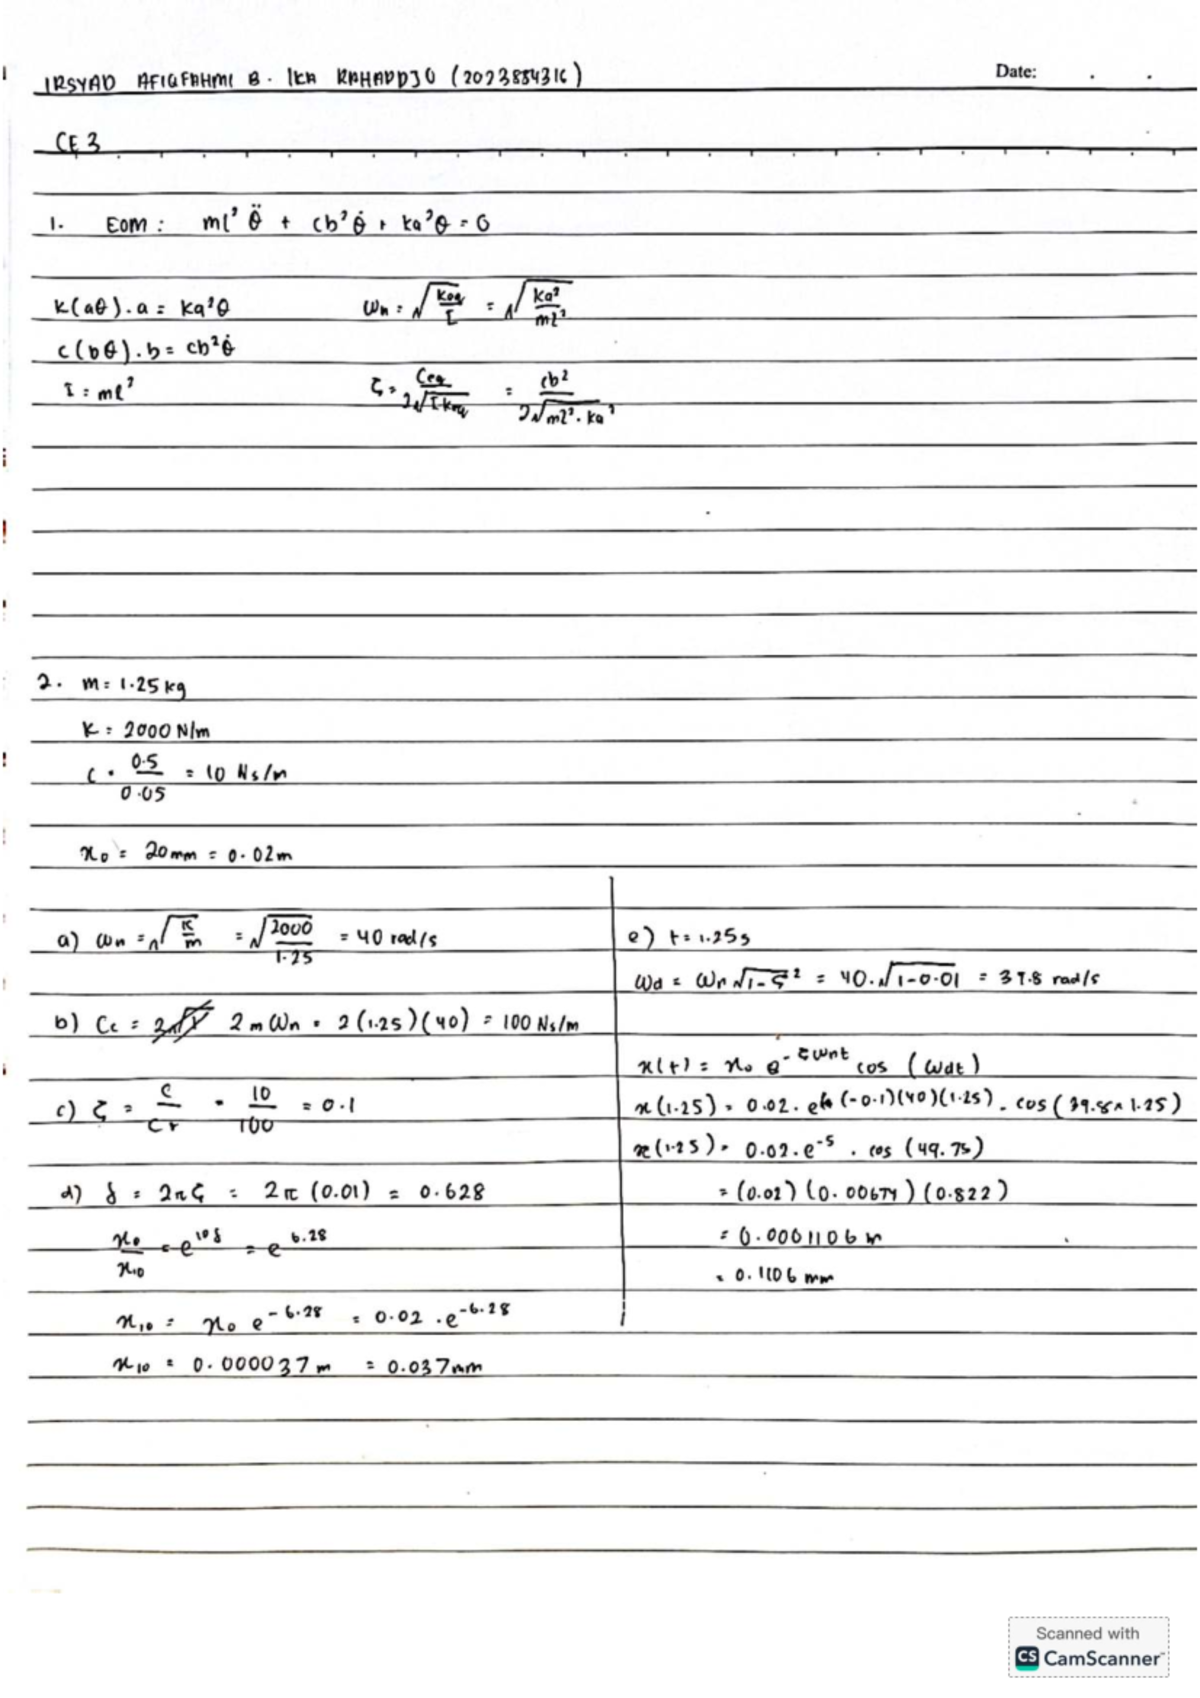 IRSYAD AFIQFAHMI B. IKA RAHARDJO (2023854316)
Date: . .
CE 3
1. EOM : ml² θ̈ + cb² θ̇ + ka²θ = 0
k(aθ).a = ka²θ
ωn = √(keq/I) = √(ka²/ml²)
c(bθ̇).b = cb²θ̇
I = ml²
ζ = Ceq/2√(I keq) = cb²/2√(ml².ka²)
2. m = 1.25 kg
k = 2000 N/m
c = 0.5/0.05 = 10 Ns/m
x₀ = 20mm = 0.02m
a) ωn = √(k/m) = √(2000/1.25) = 40 rad/s
b) Cc = 2mωn = 2(1.25)(40) = 100 Ns/m
c) ζ = c/cr = 10/100 = 0.1
d) δ = 2πζ = 2π(0.01) = 0.628
x₀/x₁₀ = e^10δ = e^6.28
x₁₀ = x₀ e^-6.28 = 0.02 . e^-6.28
x₁₀ = 0.000037m = 0.037mm
e) t = 1.25s
ωd = ωn √(1-ζ²) = 40.√(1-0.01) = 39.8 rad/s
x(t) = x₀ e^-ζωnt cos (ωdt)
x(1.25) = 0.02 . e^(-0.1)(40)(1.25) . cos(39.8×1.25)
x(1.25) = 0.02 . e^-5 . cos (49.75)
= (0.02)(0.00674)(0.822)
= 0.0001106 m
= 0.1106 mm
Scanned with
CS CamScanner™